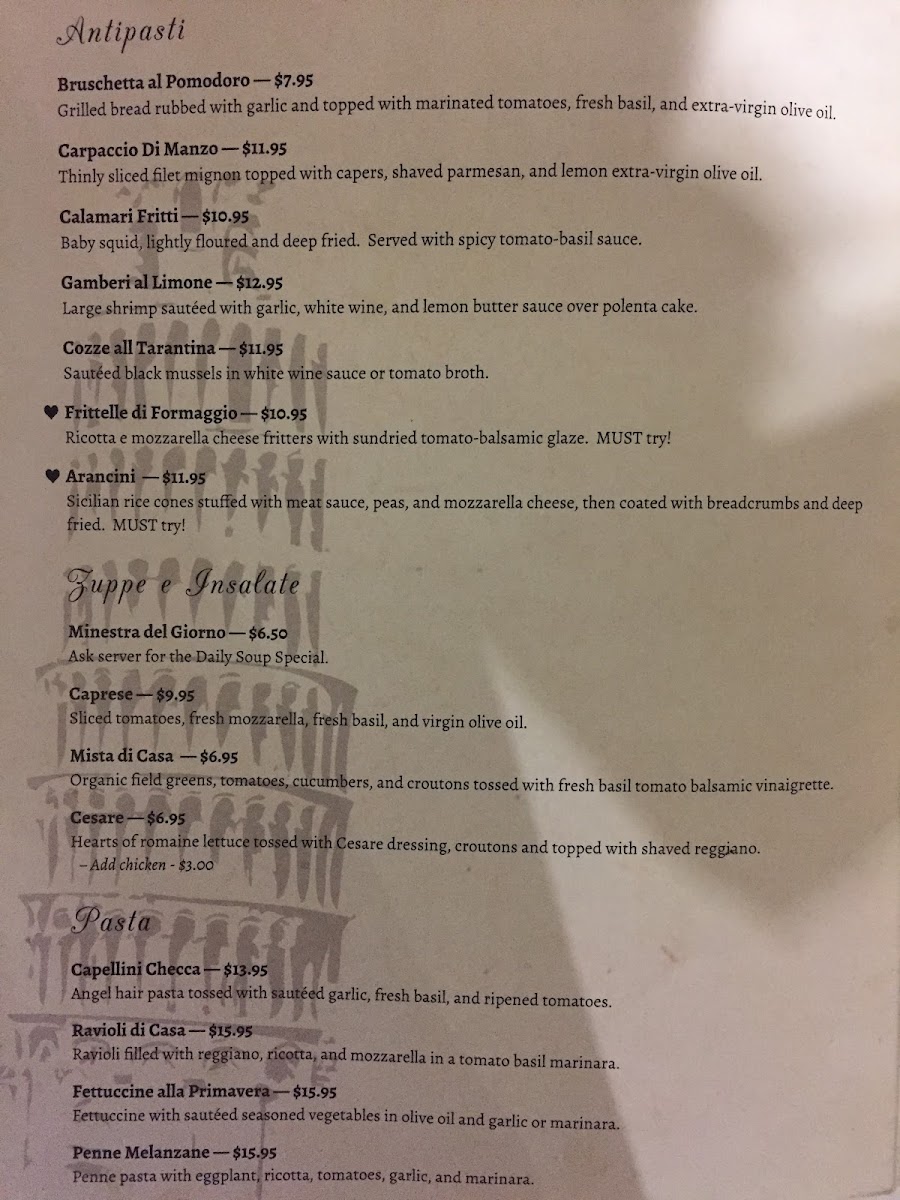 Antipasti
Bruschetta al Pomodoro — $7.95
Grilled bread rubbed with garlic and topped with marinated tomatoes, fresh basil, and extra-virgin olive oil.
Carpaccio Di Manzo — $11.95
Thinly sliced filet mignon topped with capers, shaved parmesan, and lemon extra-virgin olive oil.
Calamari Fritti — $10.95
Baby squid, lightly floured and deep fried. Served with spicy tomato-basil sauce.
Gamberi al Limone — $12.95
Large shrimp sautéed with garlic, white wine, and lemon butter sauce over polenta cake.
Cozze all Tarantina — $11.95
Sautéed black mussels in white wine sauce or tomato broth.
♥ Frittelle di Formaggio — $10.95
Ricotta e mozzarella cheese fritters with sundried tomato-balsamic glaze. MUST try!
♥ Arancini — $11.95
Sicilian rice cones stuffed with meat sauce, peas, and mozzarella cheese, then coated with breadcrumbs and deep
fried. MUST try!
Zuppe e Insalate
Minestra del Giorno — $6.50
Ask server for the Daily Soup Special.
Caprese — $9.95
Sliced tomatoes, fresh mozzarella, fresh basil, and virgin olive oil.
Mista di Casa — $6.95
Organic field greens, tomatoes, cucumbers, and croutons tossed with fresh basil tomato balsamic vinaigrette.
Cesare — $6.95
Hearts of romaine lettuce tossed with Cesare dressing, croutons and topped with shaved reggiano.
– Add chicken - $3.00
Pasta
Capellini Checca — $13.95
Angel hair pasta tossed with sautéed garlic, fresh basil, and ripened tomatoes.
Ravioli di Casa — $15.95
Ravioli filled with reggiano, ricotta, and mozzarella in a tomato basil marinara.
Fettuccine alla Primavera — $15.95
Fettuccine with sautéed seasoned vegetables in olive oil and garlic or marinara.
Penne Melanzane — $15.95
Penne pasta with eggplant, ricotta, tomatoes, garlic, and marinara.